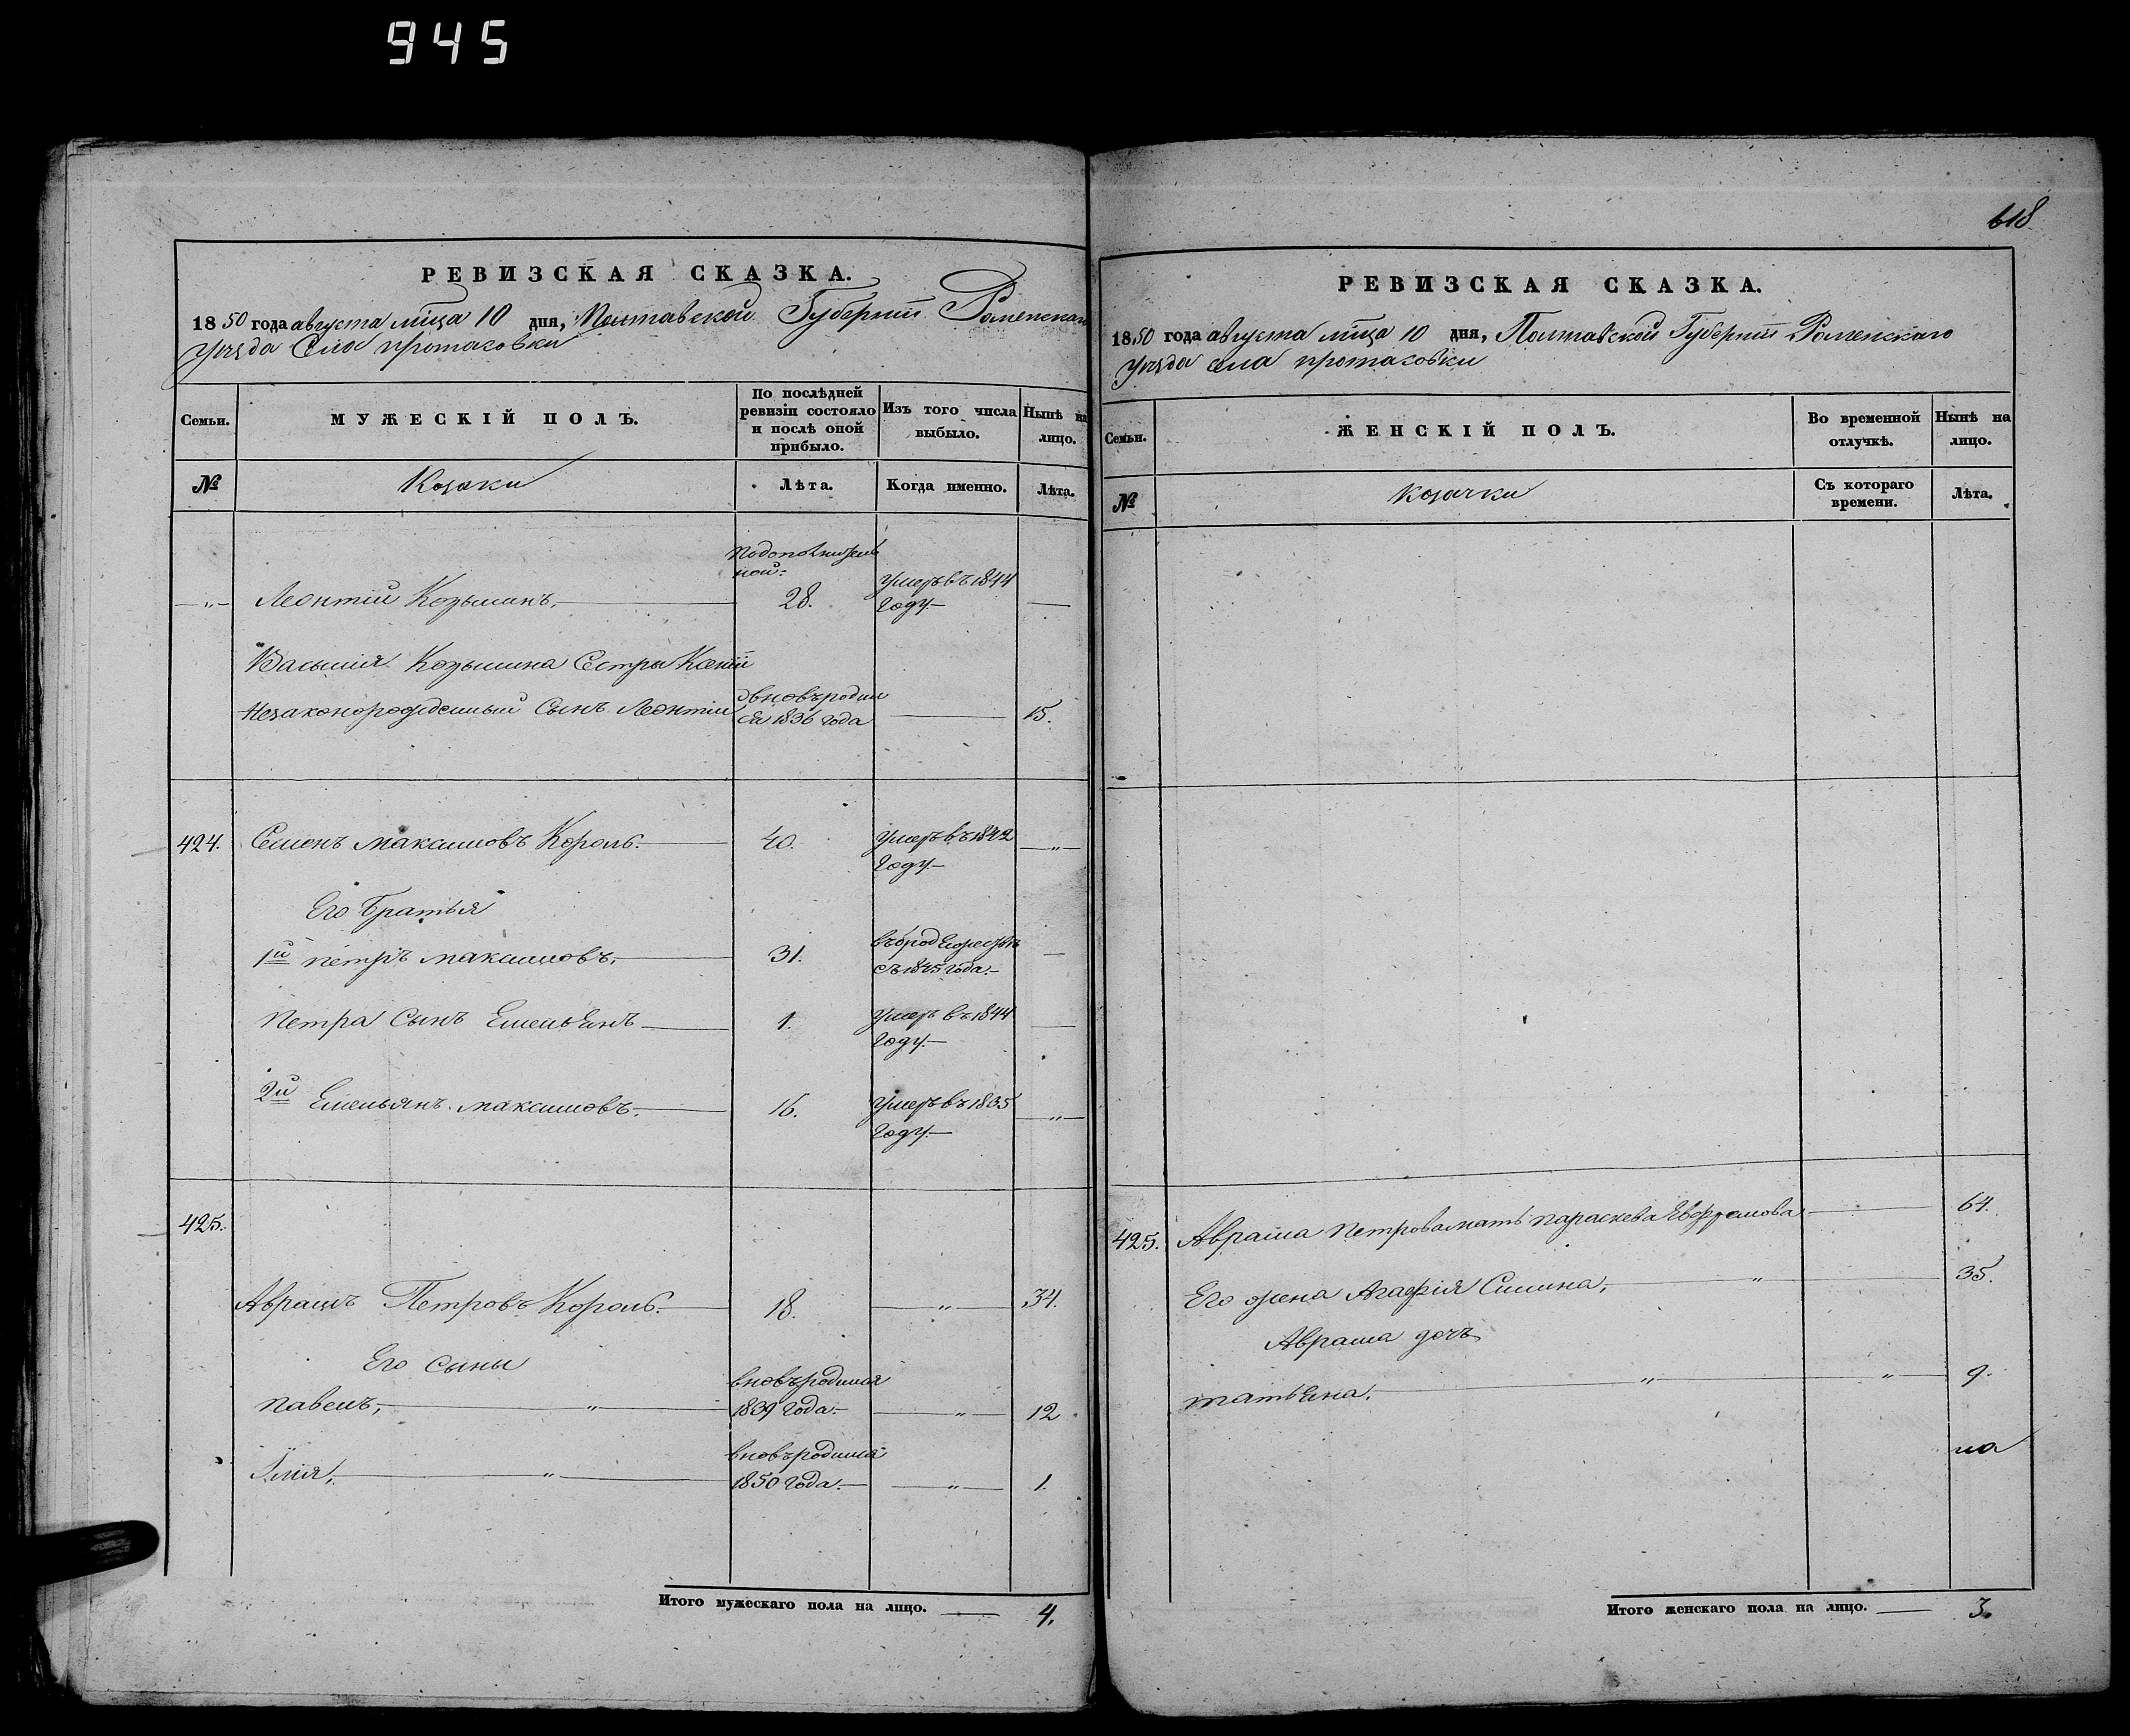 945
РЕВИЗСКАЯ СКАЗКА.
1850 года августа мѣца 10 дня, Полтавской Губерніи Роменскаго
Уѣзда Села протасовки
Семьи.
МУЖЕСКІЙ ПОЛЪ.
По послѣдней ревизіи состояло и послѣ оной прибыло.
Изъ того числа выбыло.
Нынѣ на лицо.
№
Козаки
Лѣта.
Когда именно.
Лѣта.
Леонтій Козьминъ. 28. умеръ въ 1844
Году.
Козьмина Сестры Ксеніи
Незаконорожденный Сынъ Леонтій вновь роди
ся 1836 года 15.
424. Семенъ Максимовъ Король. 40. Умеръ въ 1842
Году.
Его Братья
1й петръ максимовъ. 31.
съ 1845 года.
Петра Сынъ Емельянъ 1. Умеръ въ 1844
Году.
2й Емельянъ максимовъ. 16. Умеръ въ 1835
Году.
425.
Аврамъ Петровъ Король. 18. 34.
Его сыны
павелъ, вновь родился
1839 Года. 12
Илія, вновь родился
1850 года. 1.
Итого мужескаго пола на лицо. 4.
618
РЕВИЗСКАЯ СКАЗКА.
1850 года августа мѣца 10 дня, Полтавской Губерніи Роменскаго
Уѣзда села протасовки
Семьи.
ЖЕНСКІЙ ПОЛЪ.
Во временной отлучкѣ.
Нынѣ на лицо.
№
козачки
Съ котораго времени.
Лѣта.
425. Аврама Петрова мать параскева 64.
Его жена Агафія 35.
Аврама дочь
татьяна. 9.
Итого женскаго пола на лицо. 3.